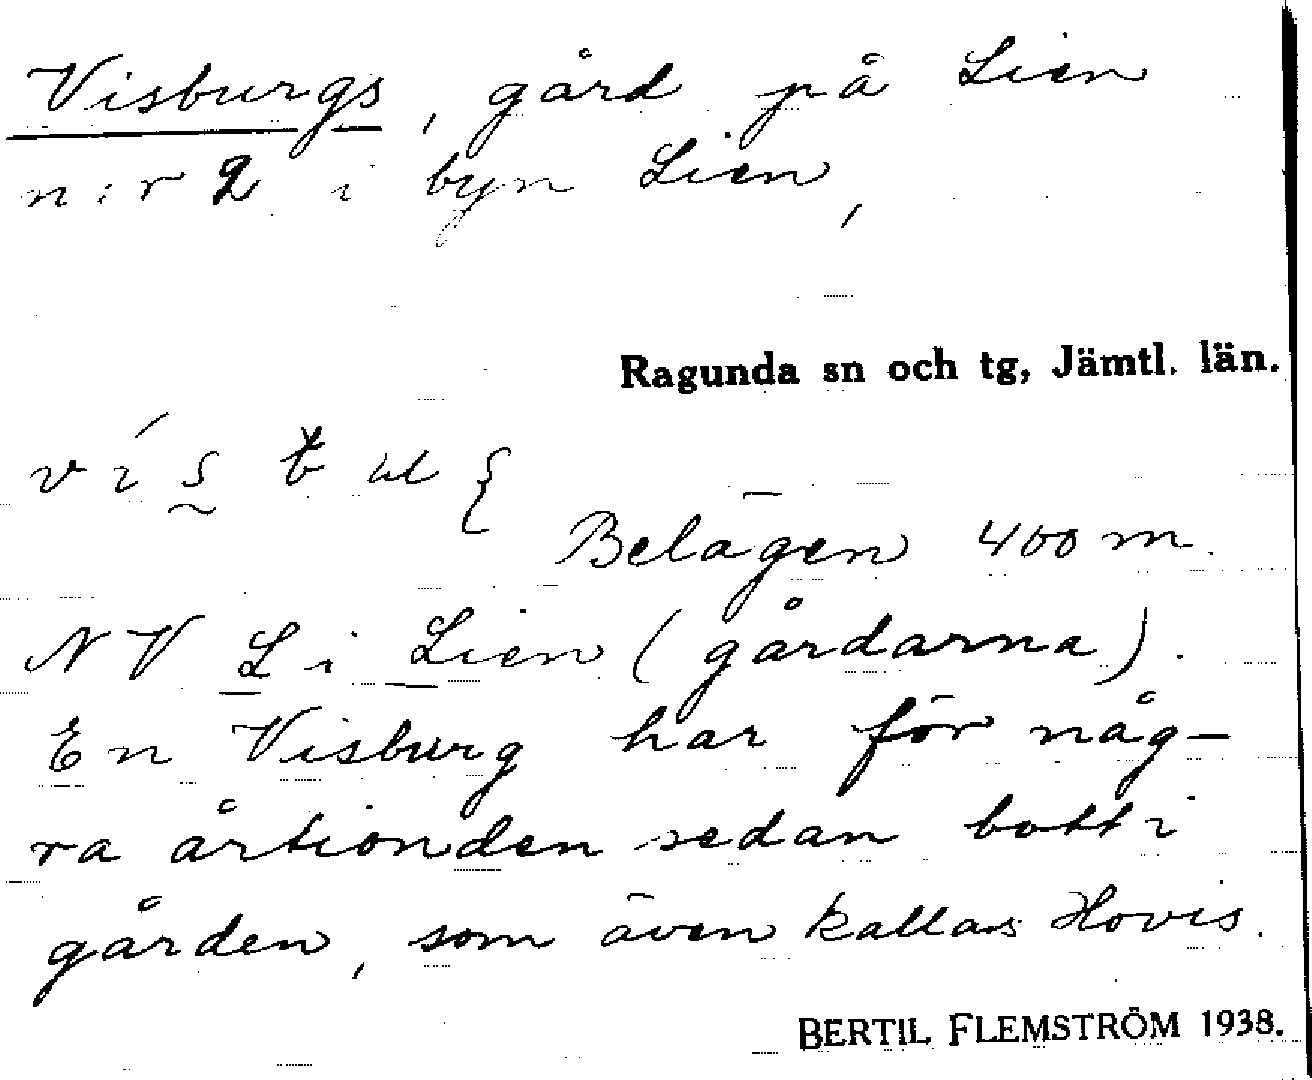 Visburgs, gård på Lien
n:r 2 i byn Lien,
Ragunda sn och tg, Jämtl. län.
Belägen 400 m.
NV L i Lien (gårdarna).
En Visburg har för någ-
ra årtionden sedan bott i
gården, som även kallas Hovis.
BERTIL FLEMSTRÖM 1938.